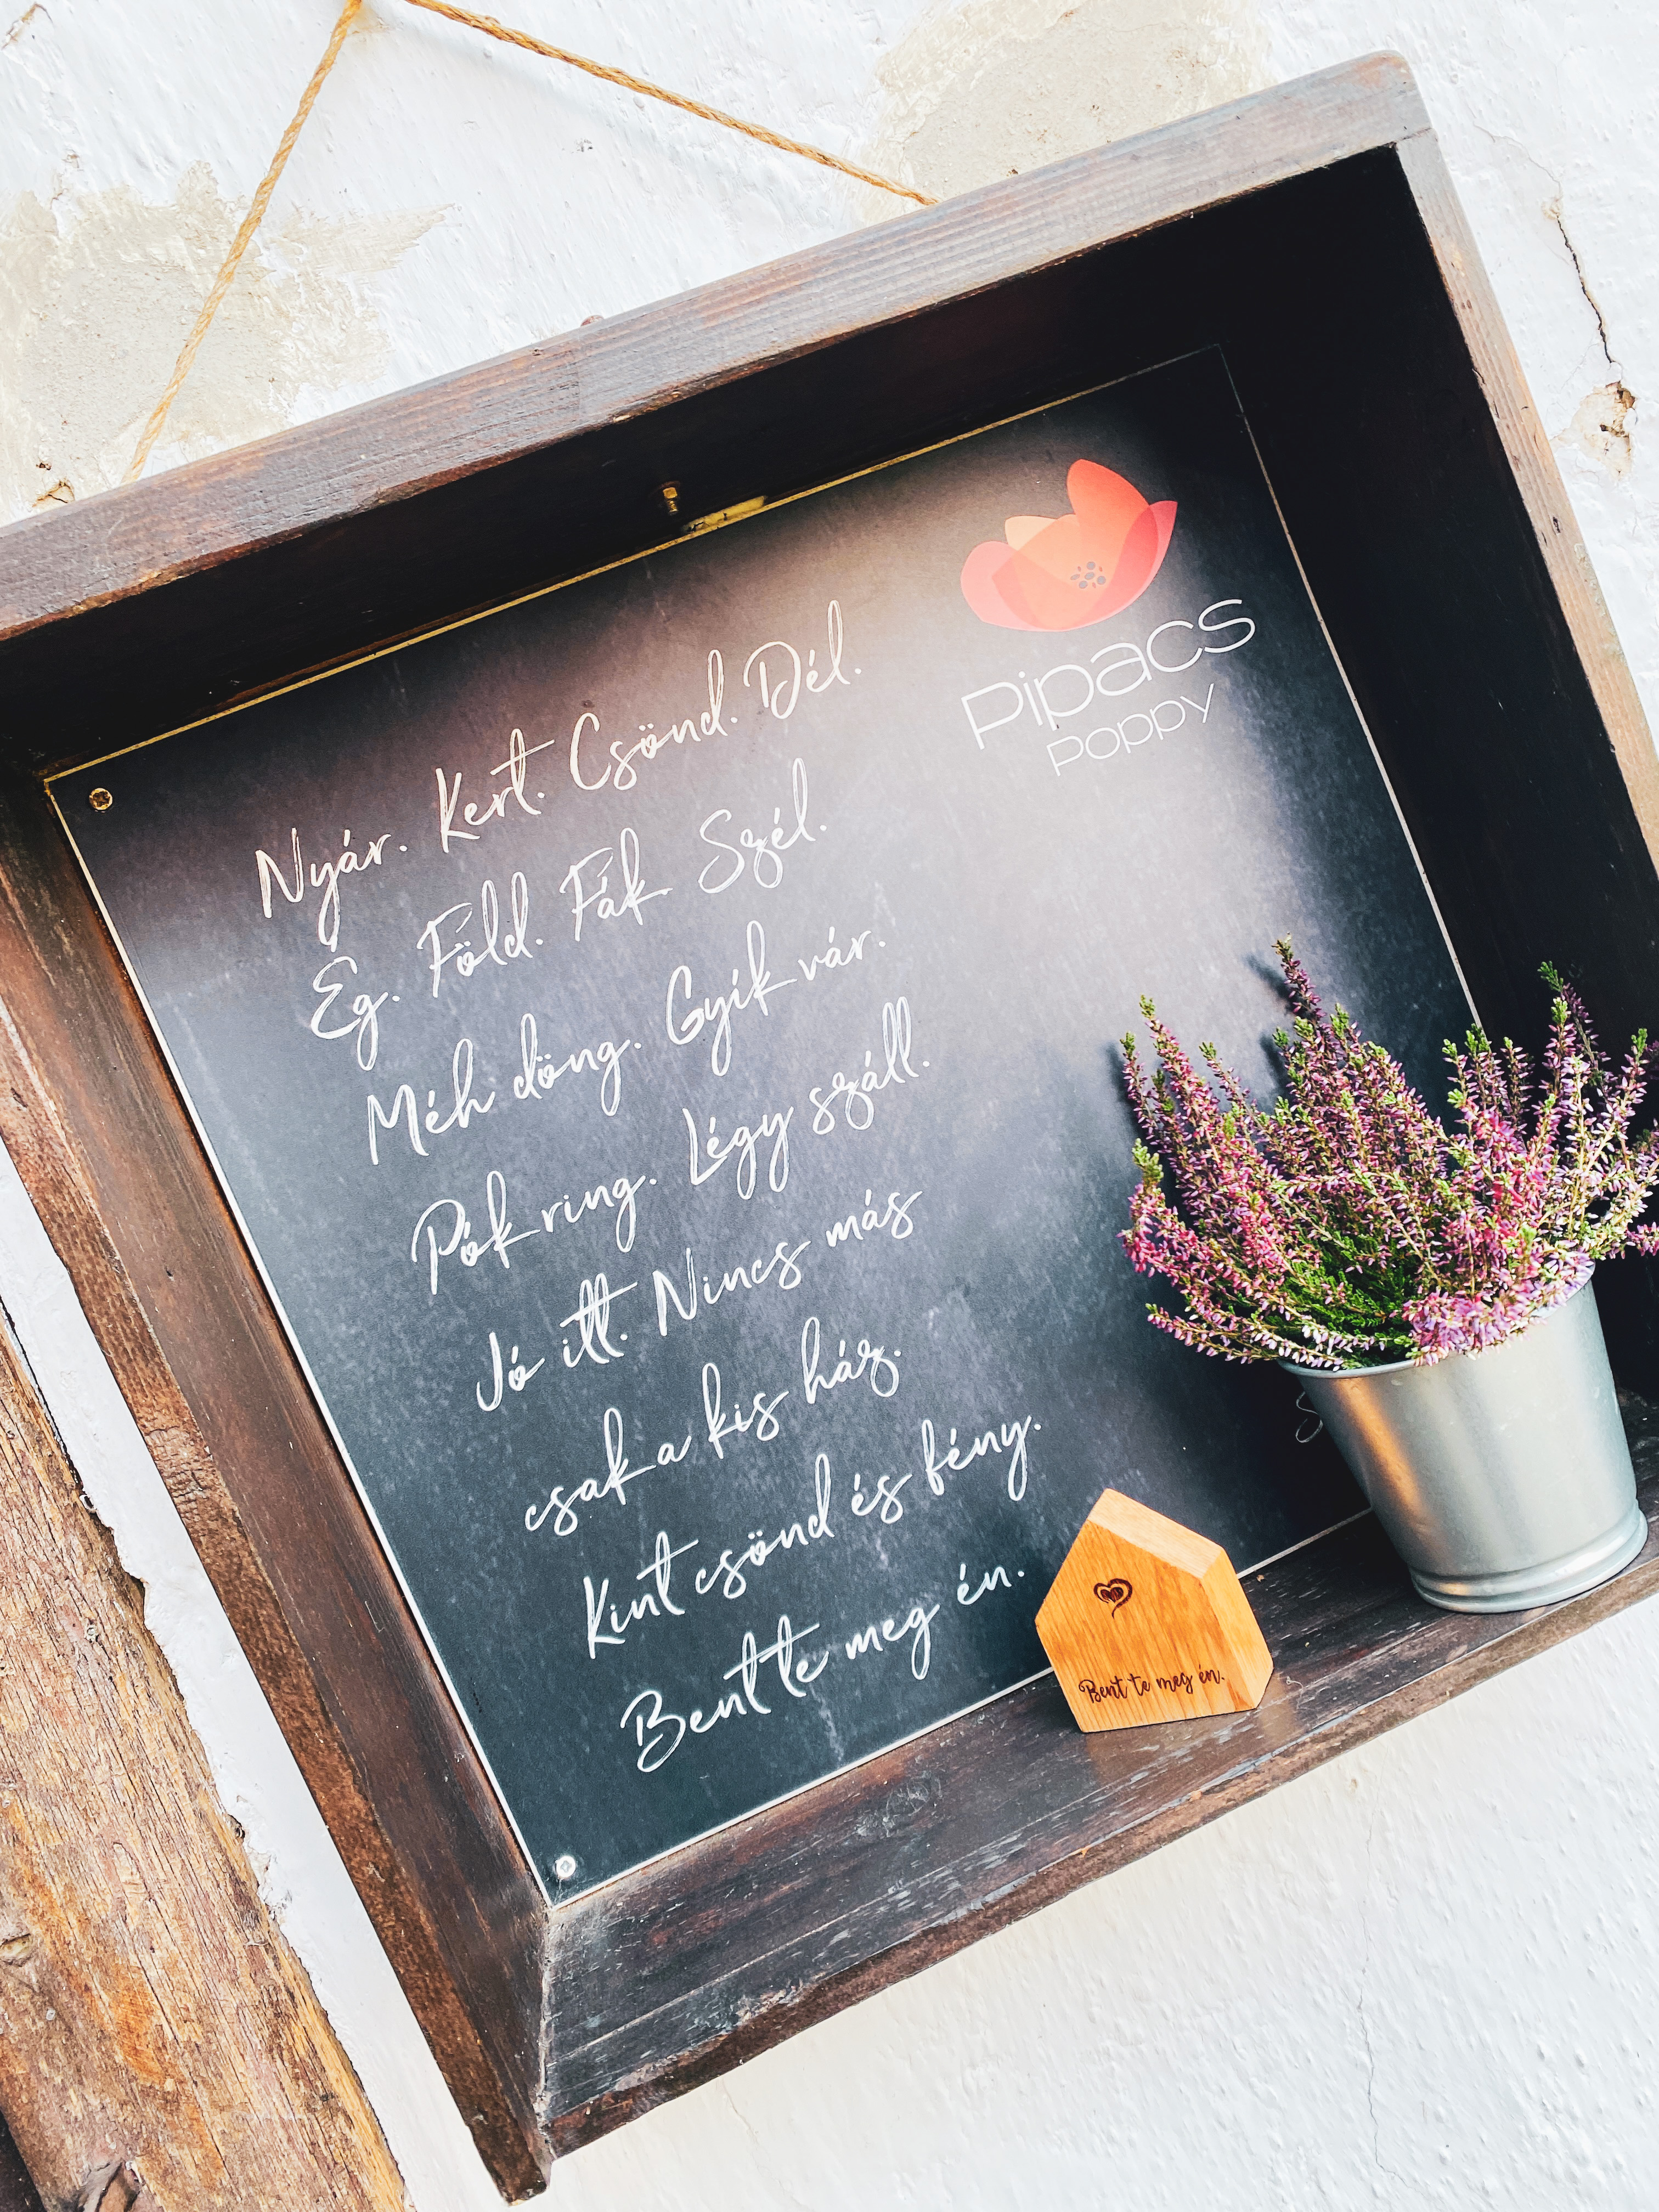 Pipacs
poppy
Nyár. Kert. Csönd. Dél.
Ég. Föld. Fák. Szél.
Méh döng. Gyík vár.
Pók ring. Légy száll.
Jó itt. Nincs más
csak a kis ház.
Kint csönd és fény.
Bent te meg én.
Bent te meg én.